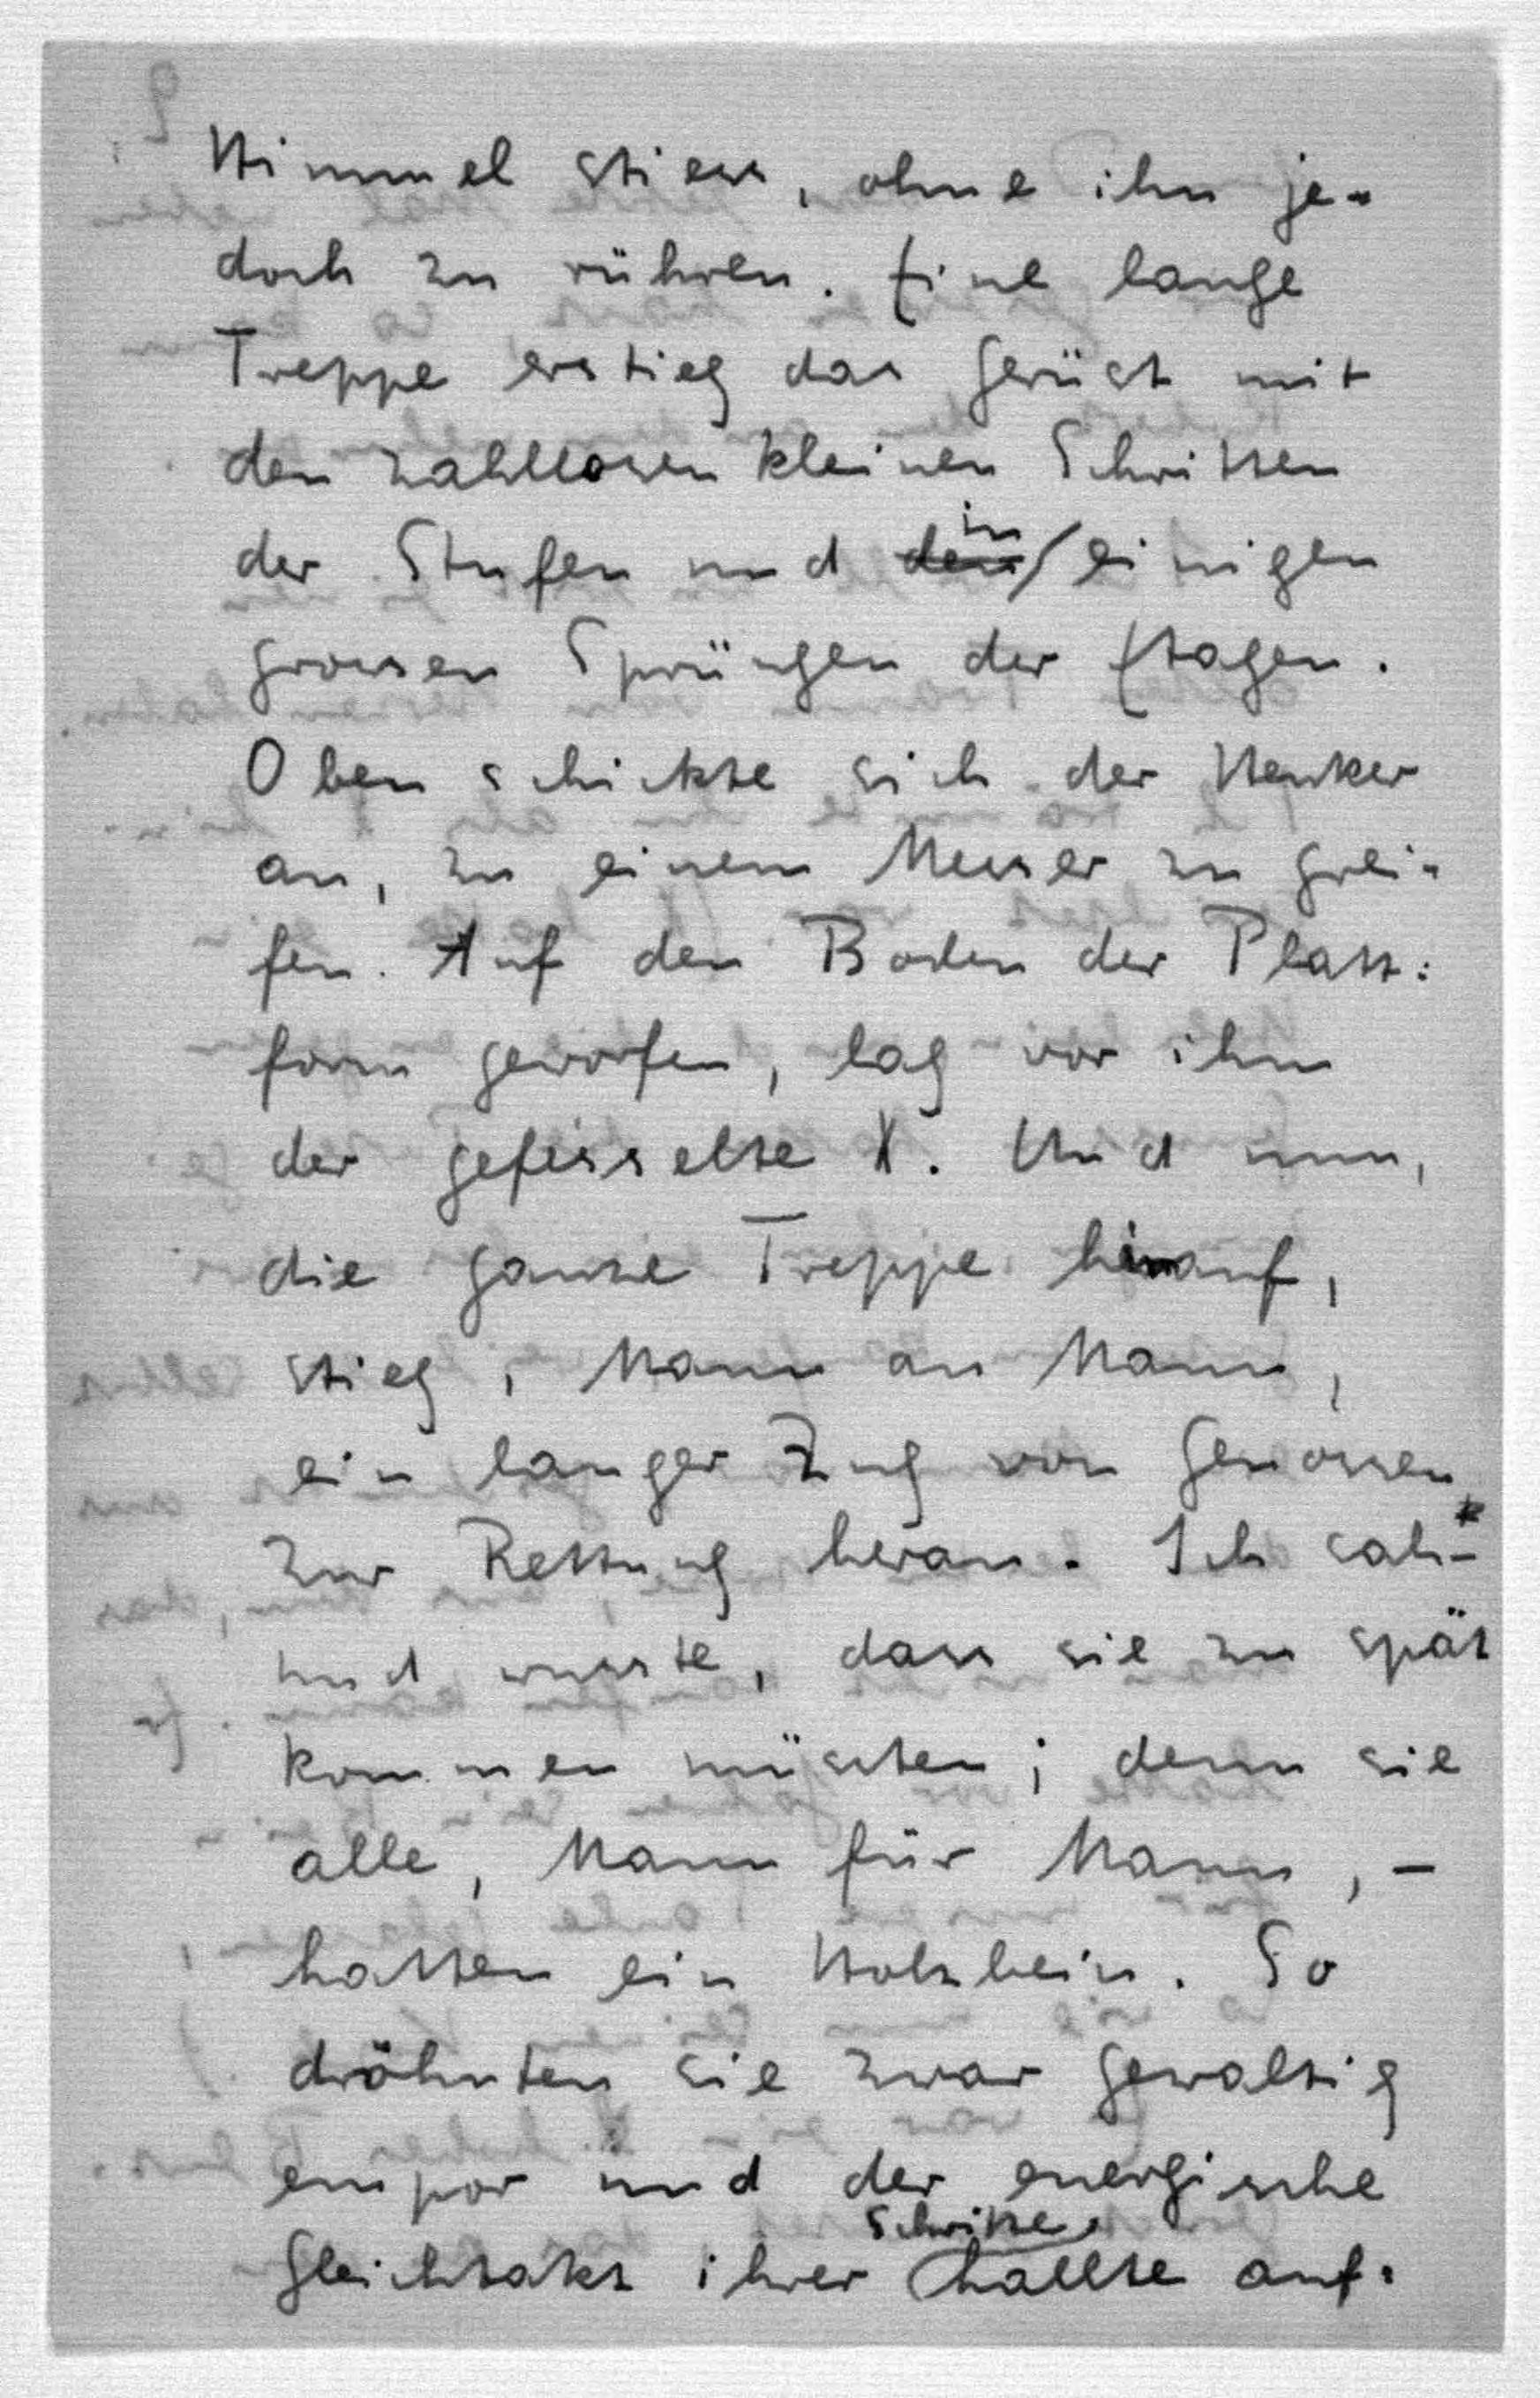 Himmel stiess, ohne ihn je-
doch zu rühren. Eine lange
Treppe erstieg das Gerüst mit
den zahllosen kleinen Schritten
der Stufen und den in einigen
grossen Sprüngen der Etagen.
Oben schickte sich der Henker
an, zu einem Messer zu grei-
fen. Auf den Boden der Platt-
form geworfen, lag vor ihm
der gefesselte X. Und nun,
die ganze Treppe hinauf,
stieg, Mann an Mann,
ein langer Zug von Genossen
zur Rettung heran. Ich sah -
und wusste, dass sie zu spät
kommen müssten; denn sie
alle, Mann für Mann, -
hatten ein Holzbein. So
dröhnten sie zwar gewaltig
empor und der energische
Gleichtakt ihrer Schritte hallte auf-